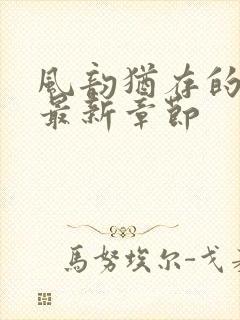 風韵猶存的
最新章節
馬努埃尔-戈